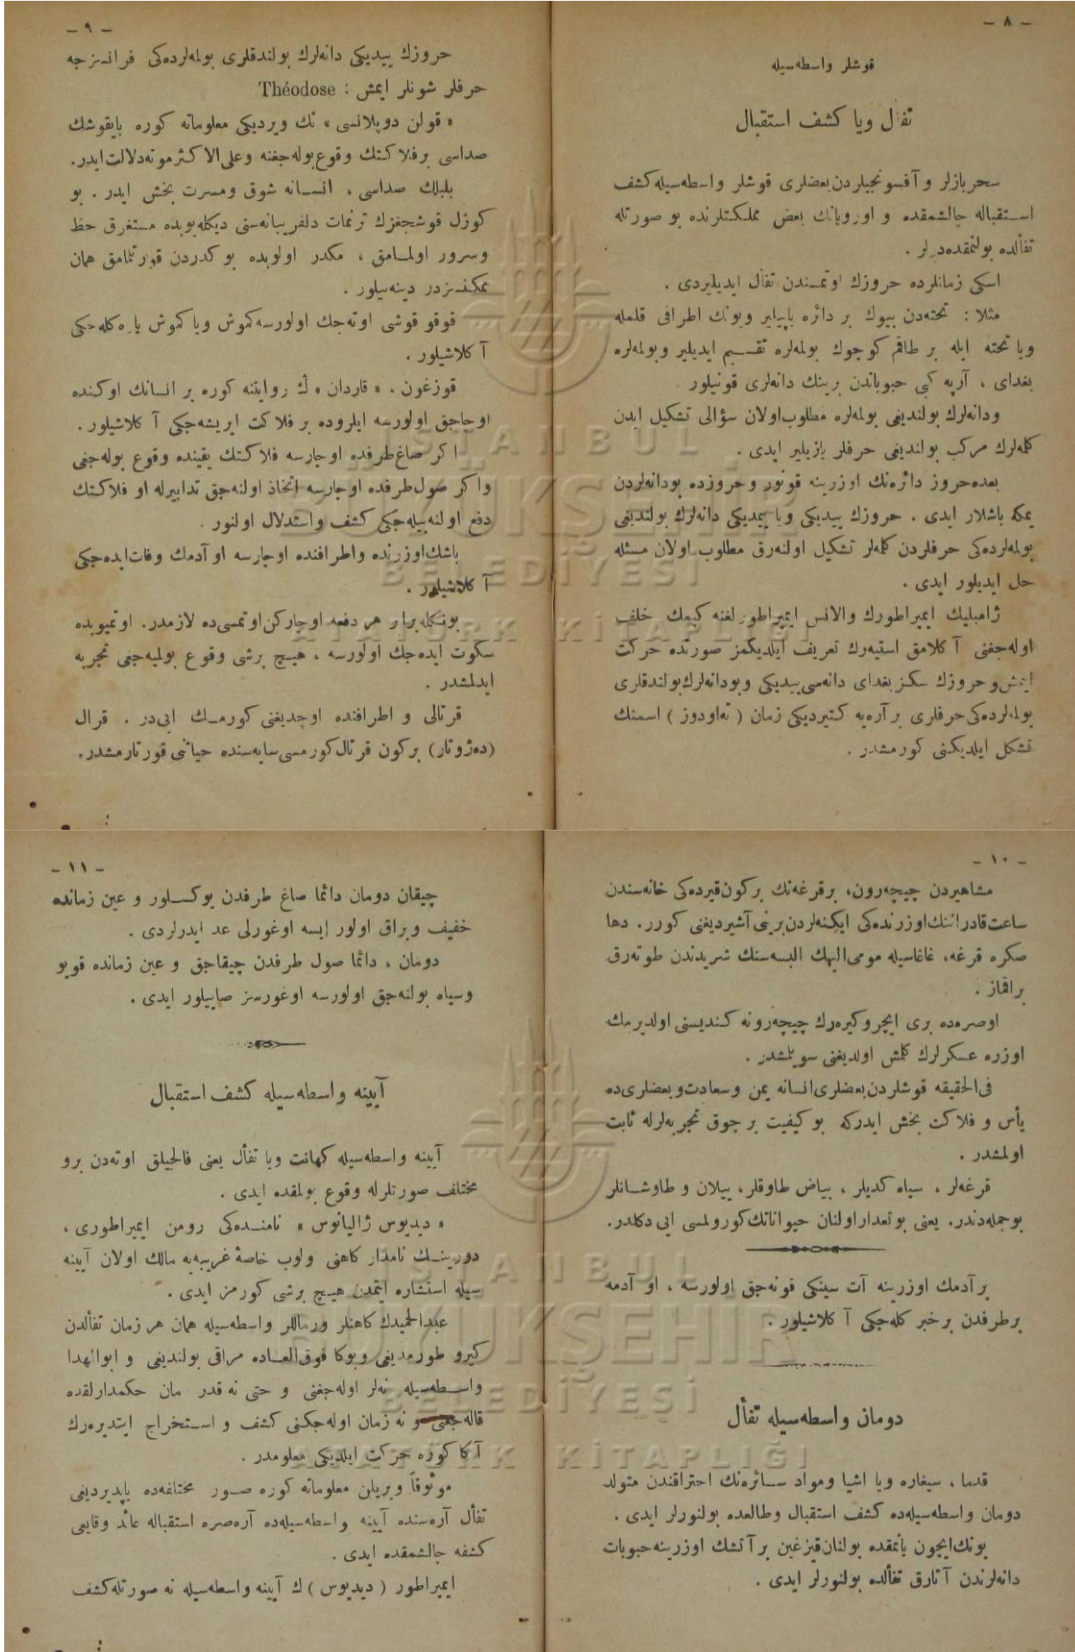 - ٨ -
قوشلر واسطه‌سیله
تفأل ویا کشف استقبال
سحربازلر و آفسونجیلردن بعضلری قوشلر واسطه‌سیله کشف
استقباله چالشمقده و اوروپانك بعض مملکتلرنده بو صورتله
تفألده بولنمقده‌درلر .
اسکی زمانلرده خروزك اوتمسندن تفأل ایدیلیردی .
مثلا : تخته‌دن بیوك بر دائره یاپیلیر وبونك اطرافی قلمله
ویا تخته ایله بر طاقم کوچوك بولمه‌لره تقسیم ایدیلیر وبولمه‌لره
بغدای ، آرپه کبی حبوباتدن برینك دانه‌لری قونیلور
ودانه‌لرك بولندیغی بولمه‌لره مطلوب اولان سؤالی تشکیل ایدن
کله‌لرك مرکب بولندیغی حرفلر یازیلیر ایدی .
بعده خروز دائره‌نك اوزرینه قونور وخروزده بودانه‌لردن
یمکه باشلار ایدی . خروزك ییدیکی ویا ییمدیکی دانه‌لرك بولندیغی
بولمه‌لرده‌کی حرفلردن کله‌لر تشکیل اولنه‌رق مطلوب اولان مسئله
حل ایدیلور ایدی .
ژامبلیك ایمپراطورك والانس ایمپراطورلغنه کیمك خلف
اوله‌جغنی آکلامق استیه‌رك تعریف ایلدیکمز صورتده حرکت
ایتمش وخروزك سکز بغدای دانه‌سی ییدیکی وبودانه‌لرك بولندقلری
بولمه‌لرده‌کی حرفلری بر آره‌یه کتیردیکی زمان ( ته‌اودوز ) اسمنك
تشکل ایلدیکنی کورمشدر .
- ٩ -
خروزك ییدیکی دانه‌لرك بولندقلری بولمه‌لرده‌کی فرانسزجه
حرفلر شونلر ایمش : Théodose
« قولن دوپلانسی » نك ویردیکی معلوماته کوره بایقوشك
صداسی برفلاکتك وقوع بوله‌جغنه وعلی الاکثر موته دلالت ایدر.
بلبلك صداسی ، انسانه شوق ومسرت بخش ایدر . بو
کوزل قوشجغزك ترنمات دلفریبانه‌سنی دیکله‌یوبده مستغرق حظ
وسرور اولمامق ، مکدر اولوبده بو کدردن قورتلمامق همان
ممکنسزدر دینه‌بیلور .
قوقو قوشی اوته‌جك اولورسه کموش ویا کموش پاره کله‌جکی
آکلاشیلور .
قوزغون ، « قاردان » ك روایتنه کوره بر انسانك اوکنده
اوچاجق اولورسه ایلروده بر فلاکت ایریشه‌جکی آکلاشیلور .
اکر صاغ طرفده اوچارسه فلاکتك یقینده وقوع بوله‌جغی
واکر صول طرفده اوچارسه اتخاذ اولنه‌جق تدابیرله او فلاکتك
دفع اولنه‌بیله‌جکی کشف واستدلال اولنور .
باشك اوزرنده واطرافنده اوچارسه او آدمك وفات ایده‌جکی
آکلاشیلور .
بونکله برابر هر دفعه اوچارکن اوتمسی‌ده لازمدر. اوتمیوبده
سکوت ایده‌جك اولورسه ، هیچ برشی وقوع بولمیه‌جغی تجربه
ایدلمشدر .
قرتالی و اطرافنده اوچدیغنی کورمك ایی‌در . قرال
(ده‌ژوتار) برکون قرتال کورمسی سایه‌سنده حیاتنی قورتارمشدر.
- ١٠ -
مشاهیردن چیچه‌رون، برقرغه‌نك برکون قیرده‌کی خانه‌سندن
ساعت قادراننك اوزرنده‌کی ایکنه‌لردن برینی آشیردیغنی کورر. دها
صکره قرغه، غاغاسیله مومی الیهك البسه‌سنك شریدندن طوته‌رق
براقماز .
اوصره‌ده بری ایچرو کیره‌رك چیچه‌رونه کندیسنی اولدیرمك
اوزره عسکرلرك کلمش اولدیغنی سویلمشدر .
فی‌الحقیقه قوشلردن بعضلری انسانه یمن وسعادت وبعضلری‌ده
یأس و فلاکت بخش ایدرکه بو کیفیت بر چوق تجربه‌لرله ثابت
اولمشدر .
قرغه‌لر ، سیاه کدیلر ، بیاض طاوقلر، ییلان و طاوشانلر
بوجمله‌دندر. یعنی بو تعداد اولنان حیواناتك کورولمسی ایی دکلدر.
برآدمك اوزرینه آت سینکی قونه‌جق اولورسه ، او آدمه
برطرفدن برخبر کله‌جکی آکلاشیلور .
دومان واسطه‌سیله تفأل
قدما ، سیغاره ویا اشیا ومواد سائره‌نك احتراقندن متولد
دومان واسطه‌سیله‌ده کشف استقبال وطالعده بولنورلر ایدی .
بونك ایچون یانمقده بولنان قیزغین بر آتشك اوزرینه حبوبات
دانه‌لرندن آتارق تفألده بولنورلر ایدی .
- ١١ -
چیقان دومان دائما صاغ طرفدن یوکسلور و عین زمانده
خفیف وبراق اولور ایسه اوغورلی عد ایدرلردی .
دومان ، دائما صول طرفدن چیقاجق و عین زمانده قویو
وسیاه بولنه‌جق اولورسه اوغورسز صاییلور ایدی .
آیینه واسطه‌سیله کشف استقبال
آیینه واسطه‌سیله کهانت ویا تفأل یعنی فالجیلق اوته‌دن برو
مختلف صورتلرله وقوع بولمقده ایدی .
« دیدیوس ژالیانوس » نامنده‌کی رومن ایمپراطوری ،
دورینك نامدار کاهنی اولوب خاصهٔ غریبه‌یه مالك اولان آیینه
سیله استشاره ایتمدن هیچ برشی کورمز ایدی .
عبدالحمیدك کاهنلر ورماللر واسطه‌سیله همان هر زمان تفألدن
کیرو طورمدیغی وبوکا فوق‌العاده مراقی بولندیغی و ابوالهدا
واسطه‌سیله نه‌لر اوله‌جغنی و حتی نه قدر زمان حکمدارلقده
قاله‌جغنی و نه زمان اوله‌جکنی کشف و استخراج ایتدیره‌رك
آکا کوره حرکت ایلدیکی معلومدر .
موثوقاً ویریلن معلوماته کوره صور مختلفه‌ده یاپدیردیغی
تفأل آره‌سنده آیینه واسطه‌سیله‌ده آره‌صره استقباله عائد وقایعی
کشفه چالشمقده ایدی .
ایمپراطور ( دیدیوس ) ك آیینه واسطه‌سیله نه صورتله کشف
İSTANBUL
BÜYÜKŞEHİR
BELEDİYESİ
ATATÜRK KİTAPLIĞI
İSTANBUL
BÜYÜKŞEHİR
BELEDİYESİ
ATATÜRK KİTAPLIĞI